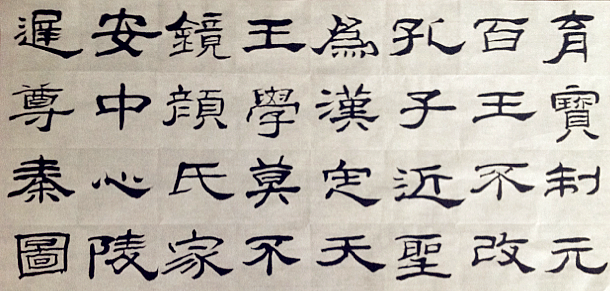 育寶制元
百王不改
孔子近聖
爲漢定天
王學莫不
鏡顔氏家
安中心陵
遲尊秦圖